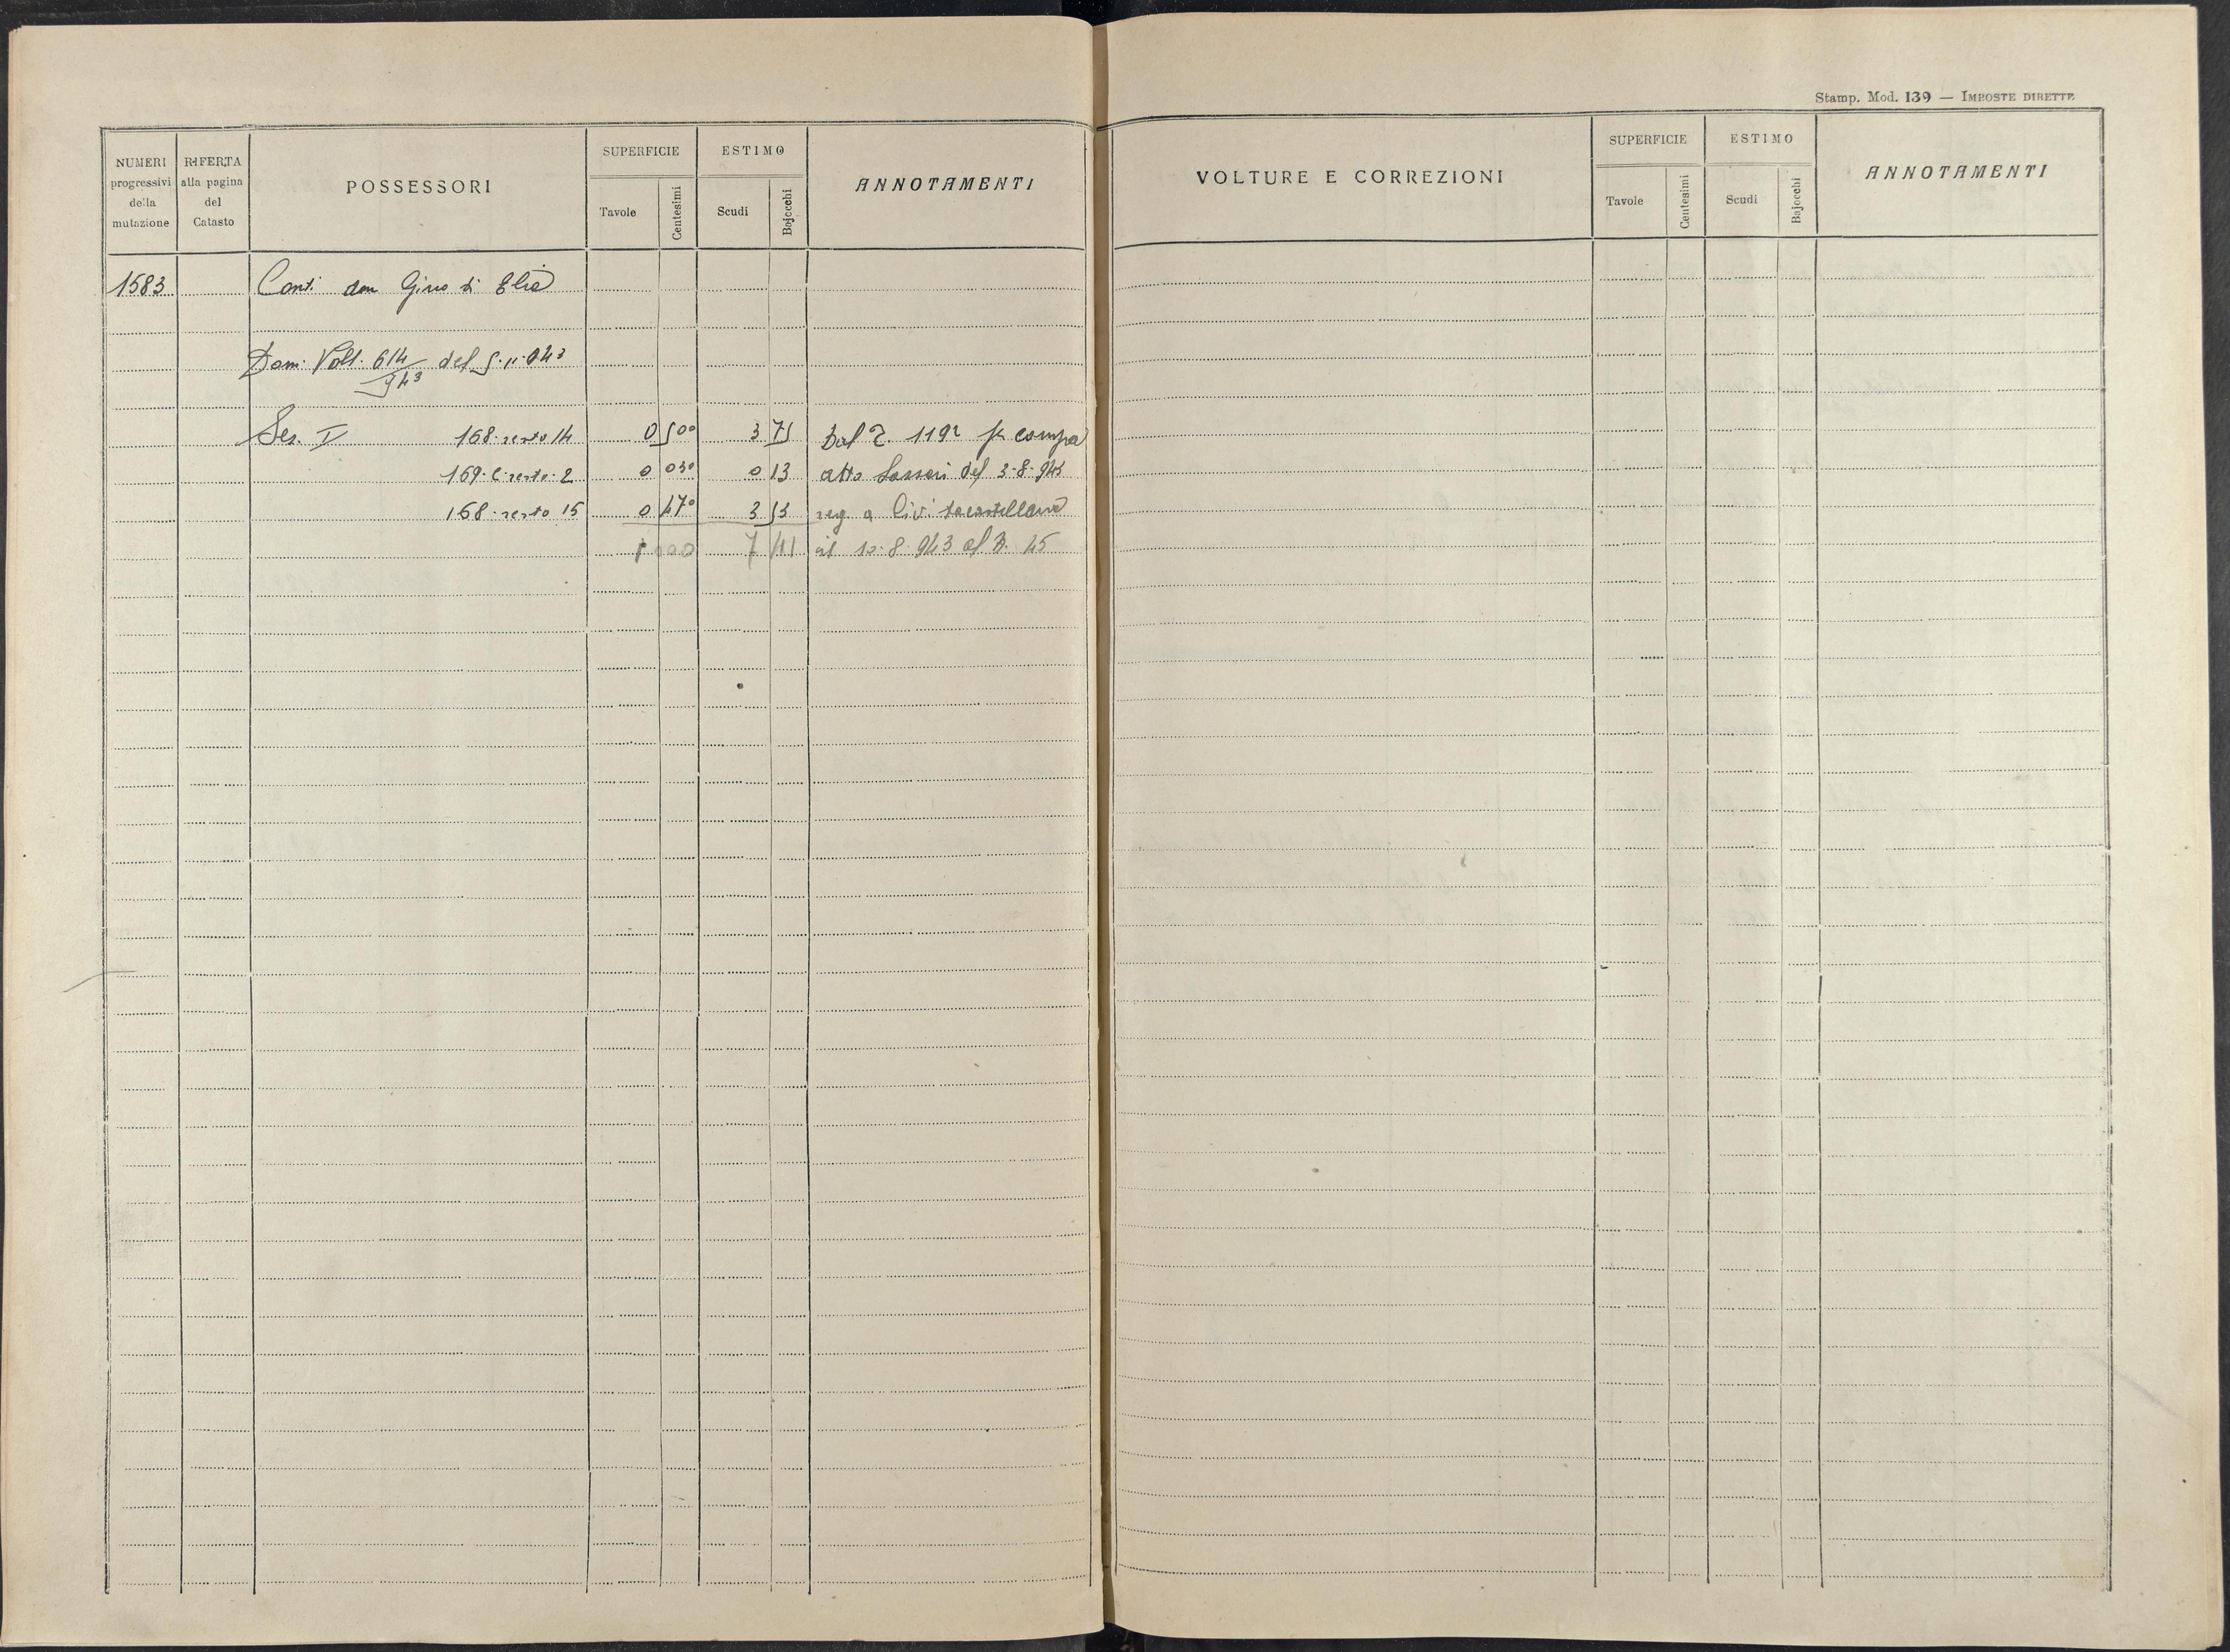 Stamp. Mod. 139 — IMPOSTE DIRETTE
NUMERI progressivi della mutazione
RIFERTA alla pagina del Catasto
POSSESSORI
SUPERFICIE
Tavole
Centesimi
ESTIMO
Scudi
Bajocchi
ANNOTAMENTI
VOLTURE E CORREZIONI
SUPERFICIE
Tavole
Centesimi
ESTIMO
Scudi
Bajocchi
ANNOTAMENTI
1583 Conti don Gino di Elia
Dom. Volt. 614/943 del 5.11.943
Sez. V 168 resto 14 0 500 3 75 Dal P. 1192 per compa
169 resto 2 0 030 0 13 atto del 3-8-943
168 resto 15 0 470 3 53 reg a Civitacastellana
1 000 7 41 il 10.8.943 al N. 45